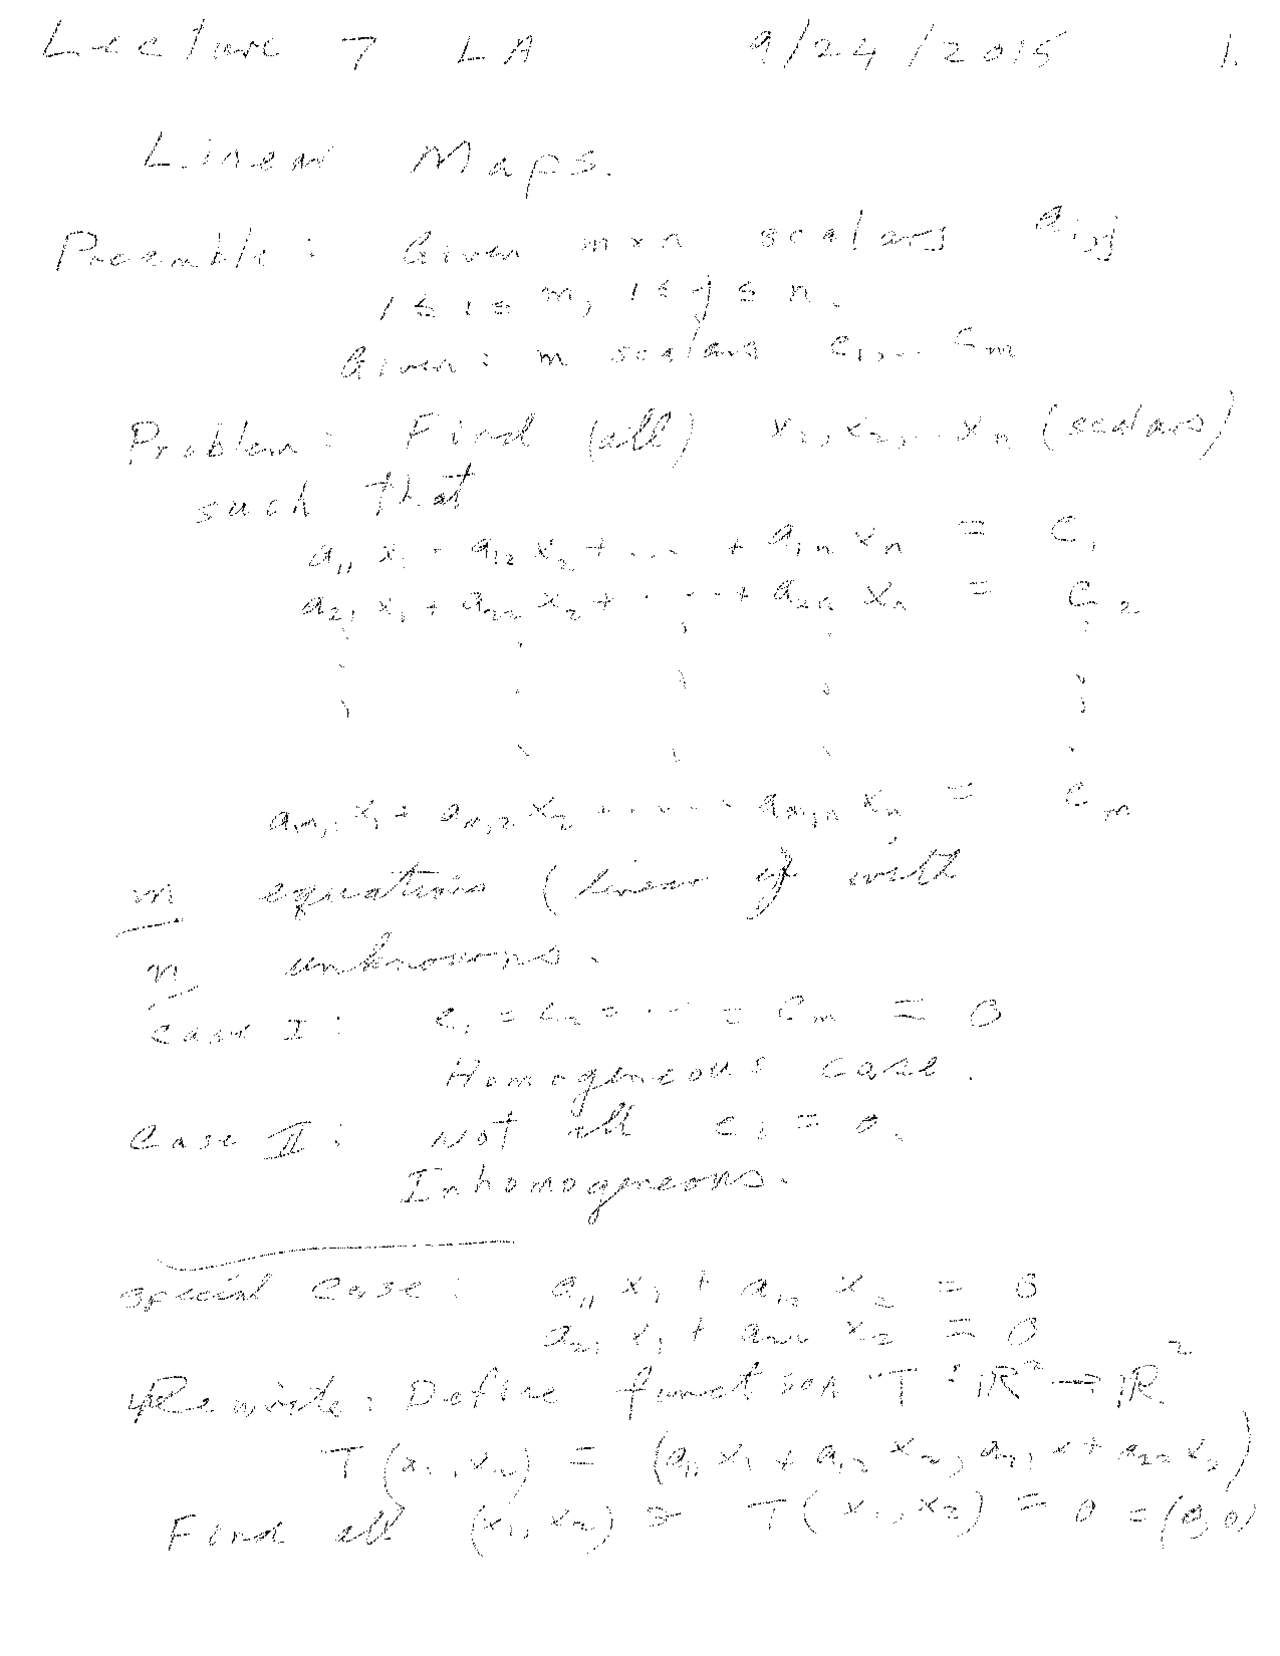 Lecture 7 LA 9/24/2015 1.
Linear Maps.
Preamble: Given m×n scalars aᵢⱼ
1 ≤ i ≤ m, 1 ≤ j ≤ n.
Given: m scalars c₁, ... cₘ
Problem: Find (all) x₁, x₂, .. xₙ (scalars)
such that
a₁₁ x₁ + a₁₂ x₂ + ... + a₁ₙ xₙ = c₁
a₂₁ x₁ + a₂₂ x₂ + ... + a₂ₙ xₙ = c₂
aₘ,₁ x₁ + aₘ,₂ x₂ + ..... aₘ,ₙ xₙ = cₘ
m equations (linear) with
n unknowns.
Case I: c₁ = c₂ = ... = cₘ = 0
Homogeneous case.
Case II: Not all cᵢ = 0.
Inhomogeneous.
Special Case: a₁₁ x₁ + a₁₂ x₂ = 0
a₂₁ x₁ + a₂₂ x₂ = 0
Rewrite: Define function T: ℝ² → ℝ²
T(x₁, x₂) = (a₁₁ x₁ + a₁₂ x₂, a₂₁ x + a₂₂ x₂)
Find all (x₁, x₂) ∋ T(x₁, x₂) = 0 = (0,0)